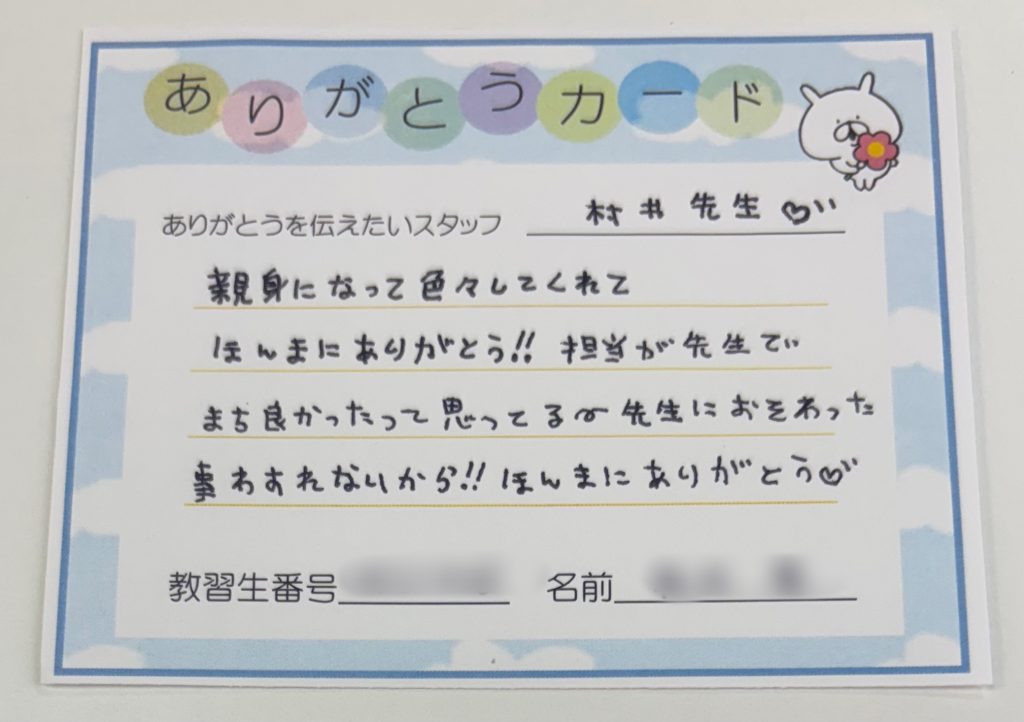 ありがとうカード
ありがとうを伝えたいスタッフ 村井 先生♡
親身になって色々してくれて
ほんまにありがとう!! 担当が先生でぃ
まぢ良かったって思ってる〜 先生におそわった
事わすれないから!! ほんまにありがとう♡
教習生番号 名前